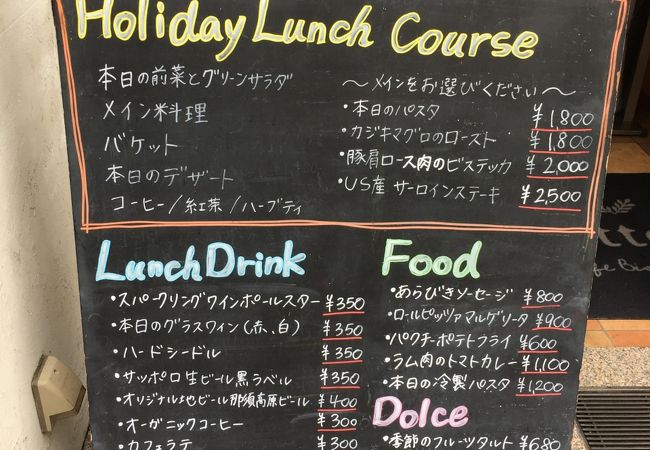 Holiday Lunch Course
本日の前菜とグリーンサラダ
メイン料理
バケット
本日のデザート
コーヒー/紅茶/ハーブティ
〜メインをお選びください〜
・本日のパスタ ¥1,800
・カジキマグロのロースト ¥1,800
・豚肩ロース肉のビステッカ ¥2,000
・US産 サーロインステーキ ¥2,500
Lunch Drink
・スパークリングワインポールスター ¥350
・本日のグラスワイン(赤、白) ¥350
・ハードシードル ¥350
・サッポロ生ビール黒ラベル ¥350
・オリジナル地ビール那須高原ビール ¥400
・オーガニックコーヒー ¥300
・カフェラテ ¥300
Food
・あらびきソーセージ ¥800
・ロールピッツァマルゲリータ ¥900
・パクチーポテトフライ ¥600
・ラム肉のトマトカレー ¥1,100
・本日の冷製パスタ ¥1,200
Dolce
・季節のフルーツタルト ¥680